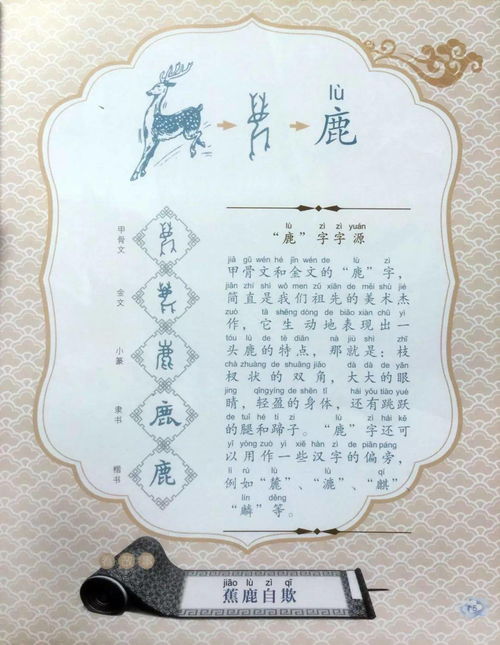 lù
鹿
甲骨文
金文
小篆
隶书
楷书
鹿
lù zì zì yuán
“鹿”字字源
jiǎ gǔ wén hé jīn wén de lù zì
甲骨文和金文的“鹿”字，
jiǎn zhí shì wǒ men zǔ xiān de měi shù jié
简直是我们祖先的美术杰
zuò tā shēng dòng de biǎo xiàn chū yì
作，它生动地表现出一
tóu lù de tè diǎn nà jiù shì zhī
头鹿的特点，那就是：枝
chà zhuàng de shuāng jiǎo dà dà de yǎn
杈状的双角，大大的眼
jing qīngyíng de shēn tǐ hái yǒu tiào yuè
睛，轻盈的身体，还有跳跃
de tuǐ hé tí zi lù zì hái kě
的腿和蹄子。“鹿”字还可
yǐ yòng zuò yì xiē hàn zì de piānpáng
以用作一些汉字的偏旁，
lì rú lù lù qí
例如“麓”、“漉”、“麒”
lín děng
“麟”等。
jiāo lù zì qī
蕉鹿自欺